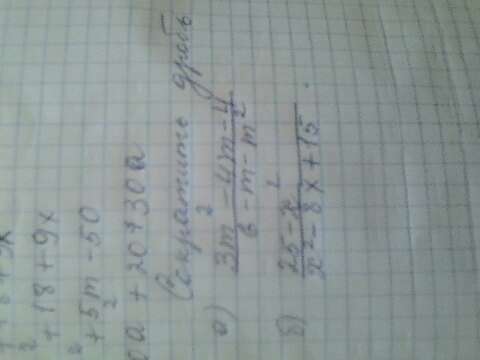 ² + 18 + 9x
² + 5m - 50
a² + 20 + 30a
Сократить дробь
а) 3m² - 4m - 4 / 6 - m - m²
б) 25 - x² / x² - 8x + 15.